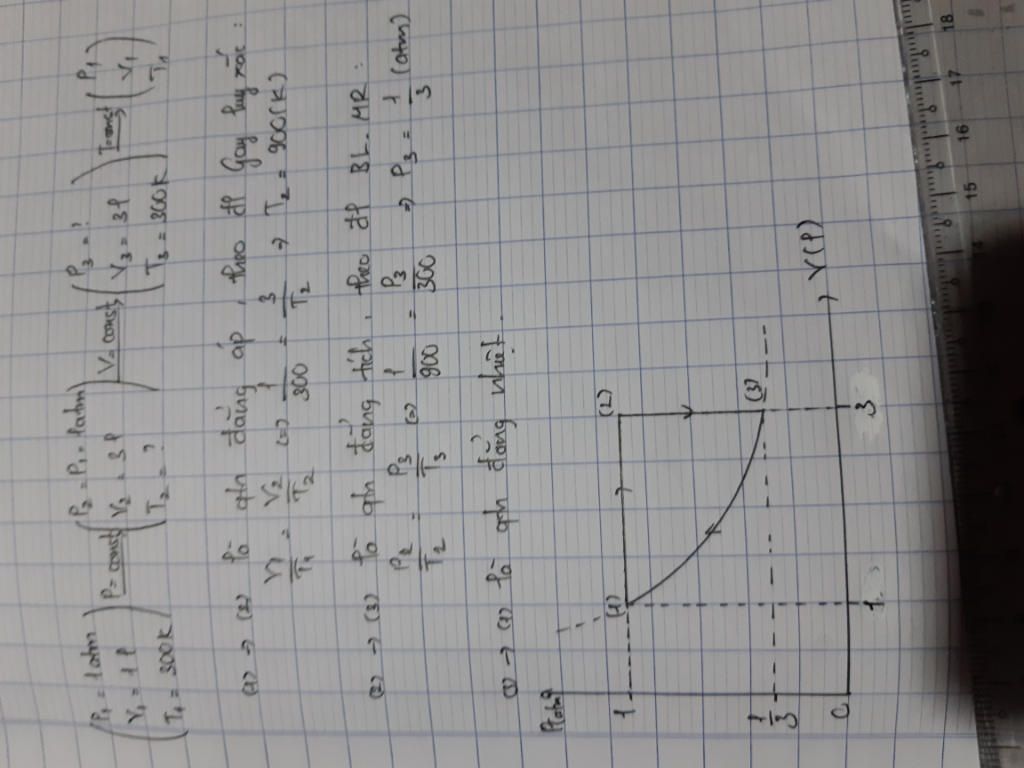 (P₁ = 1atm V₁ = 1l T₁ = 300K) P=const (P₂ = P₁ = 1atm V₂ = 3l T₂ = ?) V=const (P₃ = ? V₃ = 3l T₃ = 300K) Tconst (P₁ V₁ T₁)
(1) → (2) là qtr đẳng áp, theo đl Gay luy xắc :
V₁/T₁ = V₂/T₂ (=) 1/300 = 3/T₂ => T₂ = 900(K)
(2) → (3) là qtr đẳng tích, theo đl BL-MR :
P₂/T₂ = P₃/T₃ (=) 1/900 = P₃/300 => P₃ = 1/3 (atm)
→ (1) là qtr đẳng nhiệt.
P(atm)
(1)
(2)
1
(3)
1/3
0
1
3
V(l)
15 16 17 18